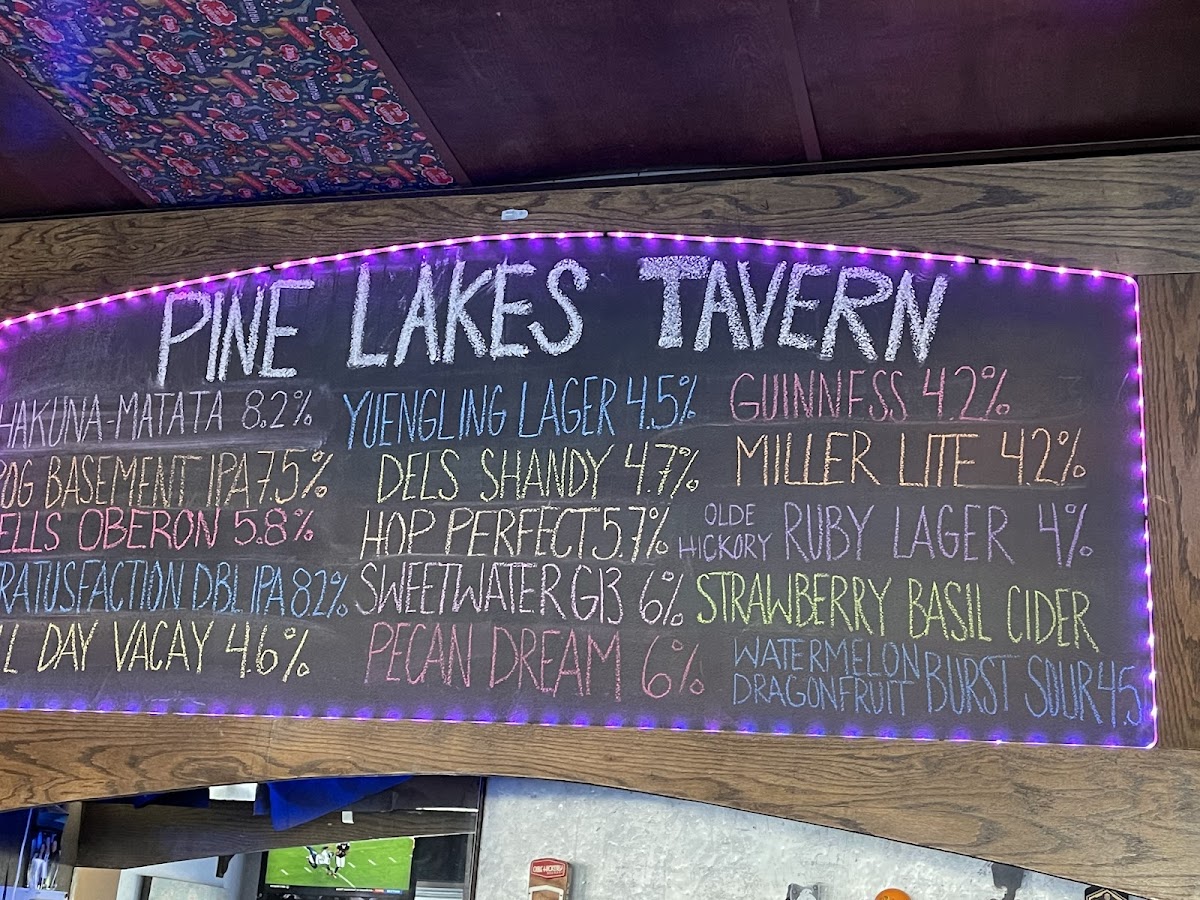 PINE LAKES TAVERN
HAKUNA-MATATA 8.2%
OG BASEMENT IPA 7.5%
ELLS OBERON 5.8%
RATUSFACTION DBL IPA 8.2%
L DAY VACAY 4.6%
YUENGLING LAGER 4.5%
DELS SHANDY 4.7%
HOP PERFECT 5.7%
SWEETWATER G13 6%
PECAN DREAM 6%
GUINNESS 4.2%
MILLER LITE 4.2%
OLDE HICKORY RUBY LAGER 4%
STRAWBERRY BASIL CIDER
WATERMELON DRAGONFRUIT BURST SOUR 4.5